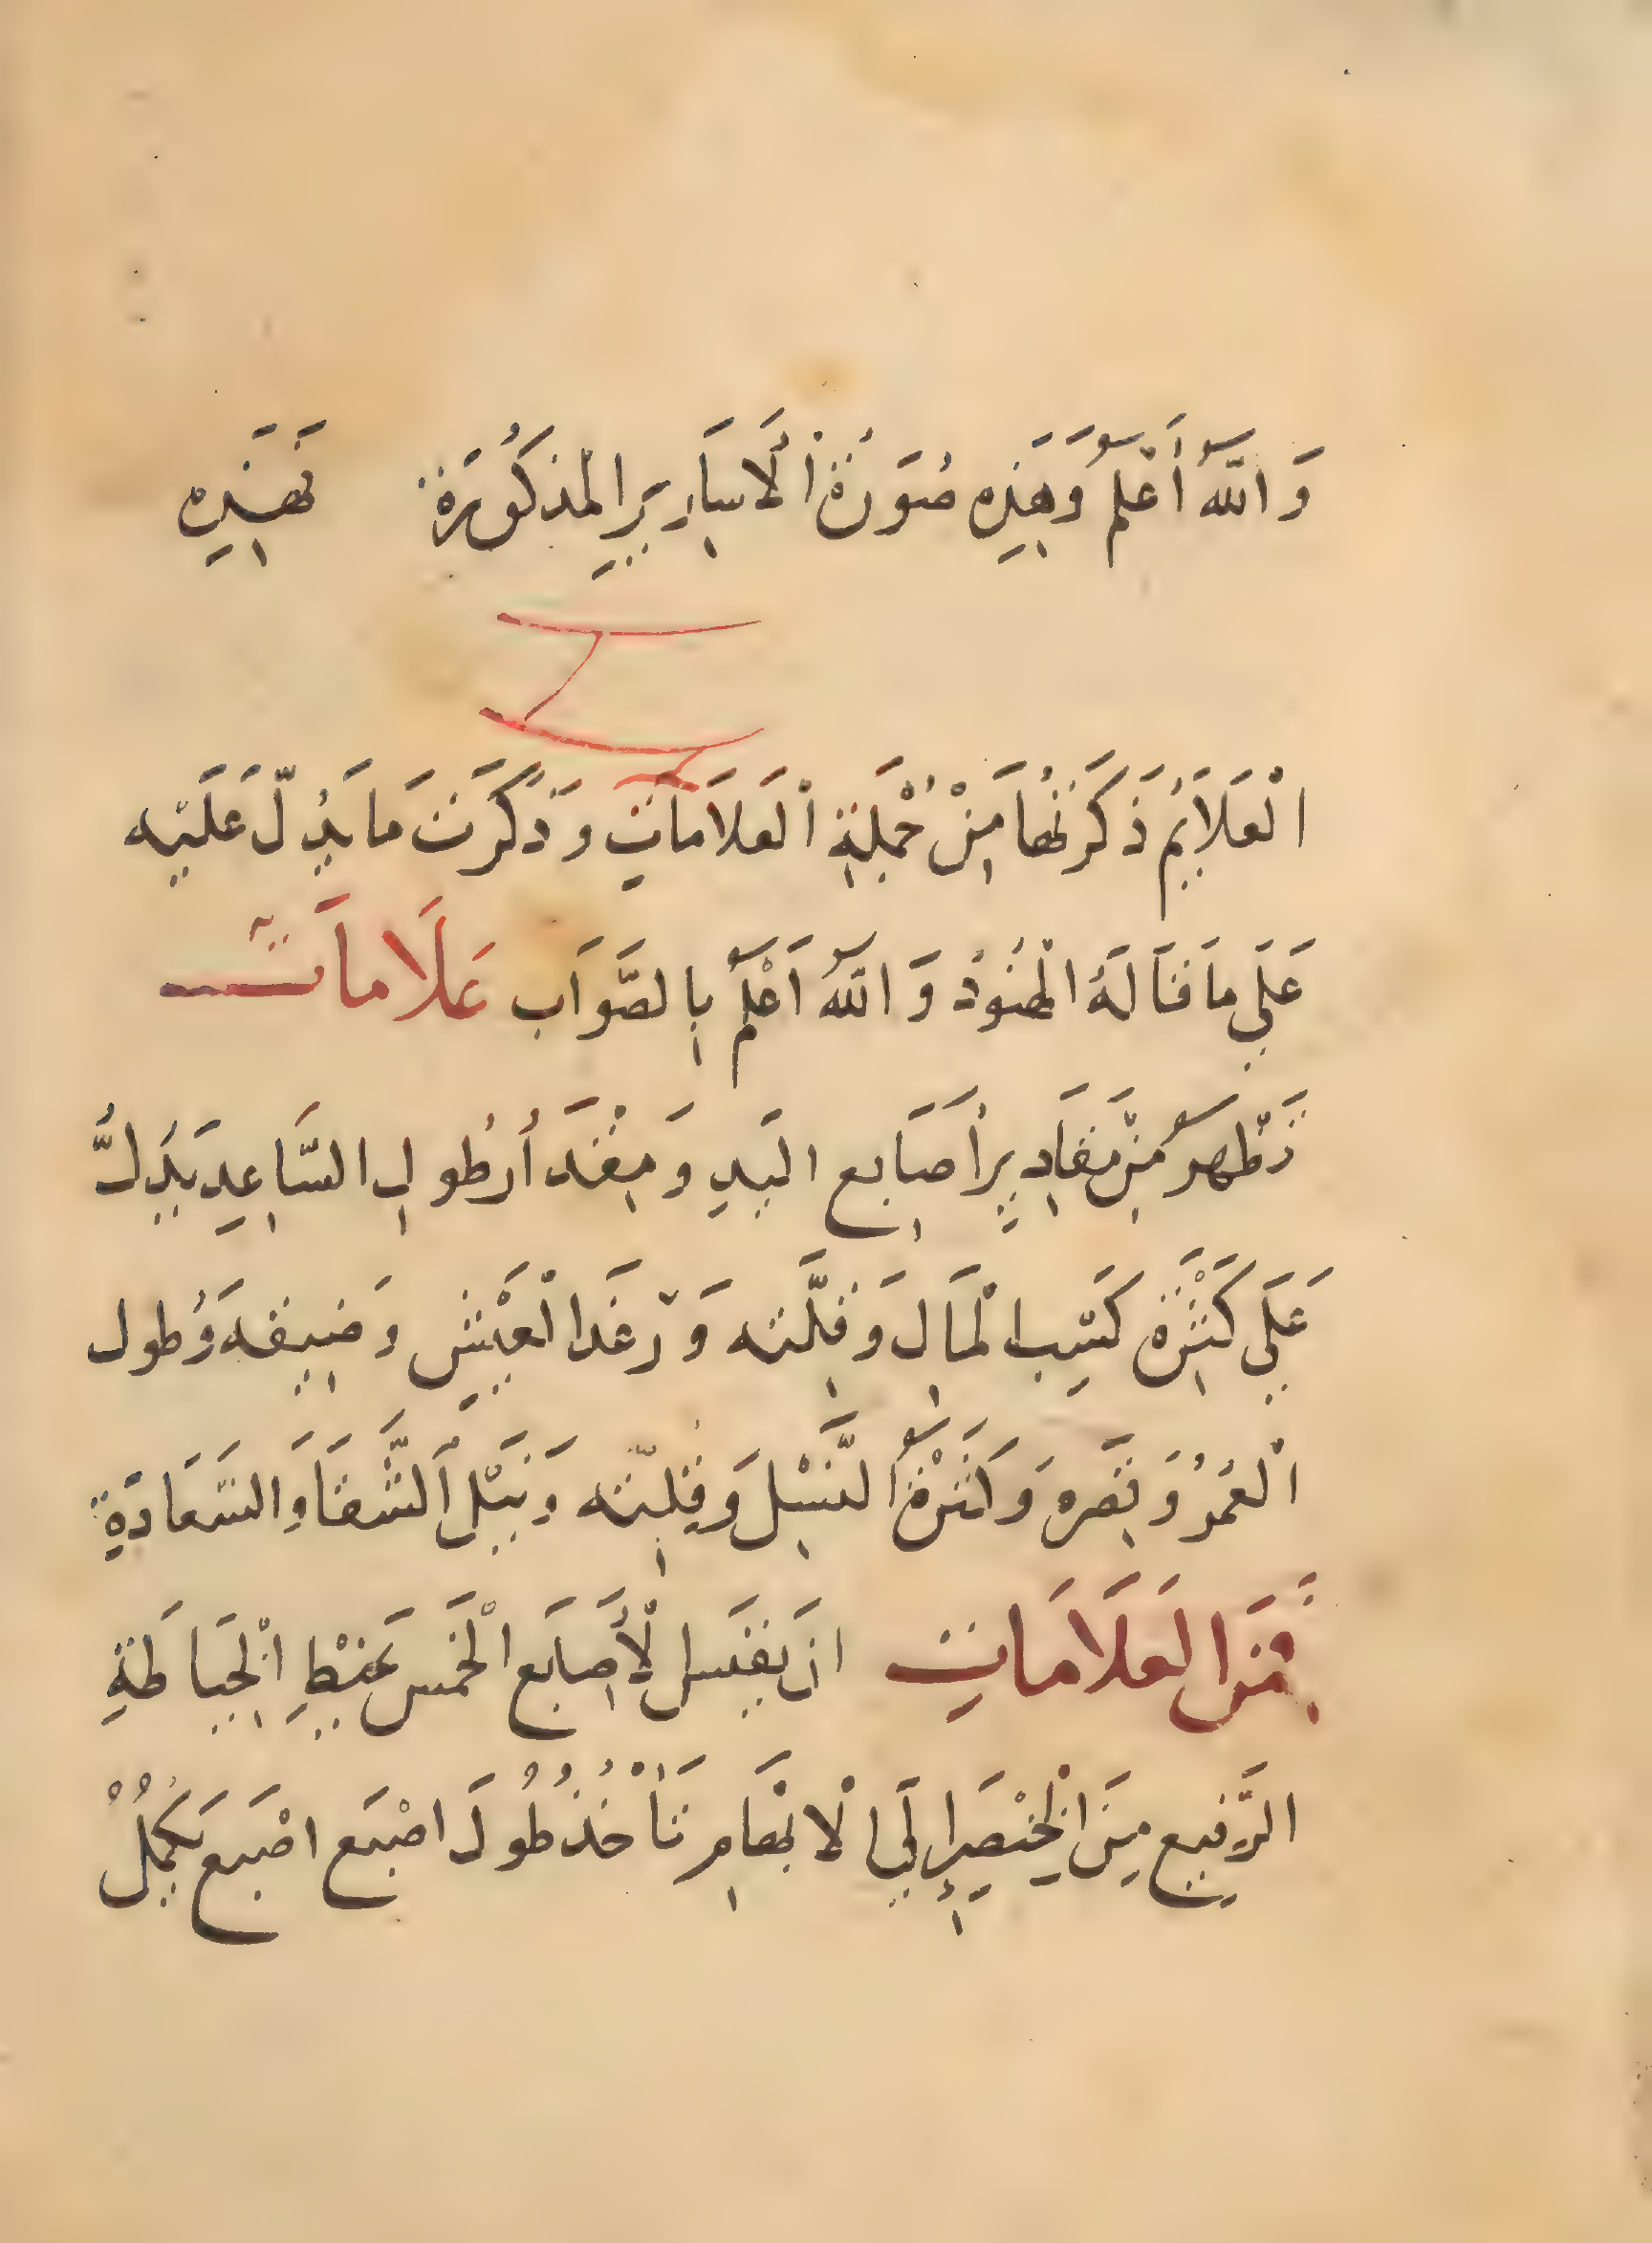 وَاللهُ أَعْلمُ وَهَذِهِ صُوَرَةُ الْأَسَارِيَرِ المْذكُورَة فَهَذِهِ
الْعَلَايُم ذَكَرتُهَا مِنْ جُمْلَةِ الْعَلَامَاتِ وَذكَرَت مَا يَدُلّ عَلَيْه
عَلَي مَا قَالَهُ الْهنُودُ وَاللهُ اَعْلَمُ بِالصَّوَاب عَلَامَاتٌ
تَظْهرُ مِنْ مَقَادِيرِ أَصَابِع اليَدِ وَمِقْدَأر طُولِ السَّاعِدِ يَدُلُّ
عَلَي كَثْرَةِ كَسْبِ الْمَالِ وَقِلَّته وَرَغَدِ الْعَيْشِ وَضِيقه وَطُول
الْعُمرُ وَقِصَره وَكَثْرَةُ النَّسْلِ وَقِلّته وَنَيْلِ الشَّقَا وَالسَّعَادَةِ
فَمِنَ العَلَامَاتِ ان يَقيسَ الْأَصَابِعَ الْخَمسَ بخَيْطِ الْخِيَاطَةِ
الرَّفِيعِ مِنَ الْخِنْصَرِ إِلَي الْابْهَامِ تَأْخُذُ طُولَ اصْبَع اصْبَع يَكمِلُ